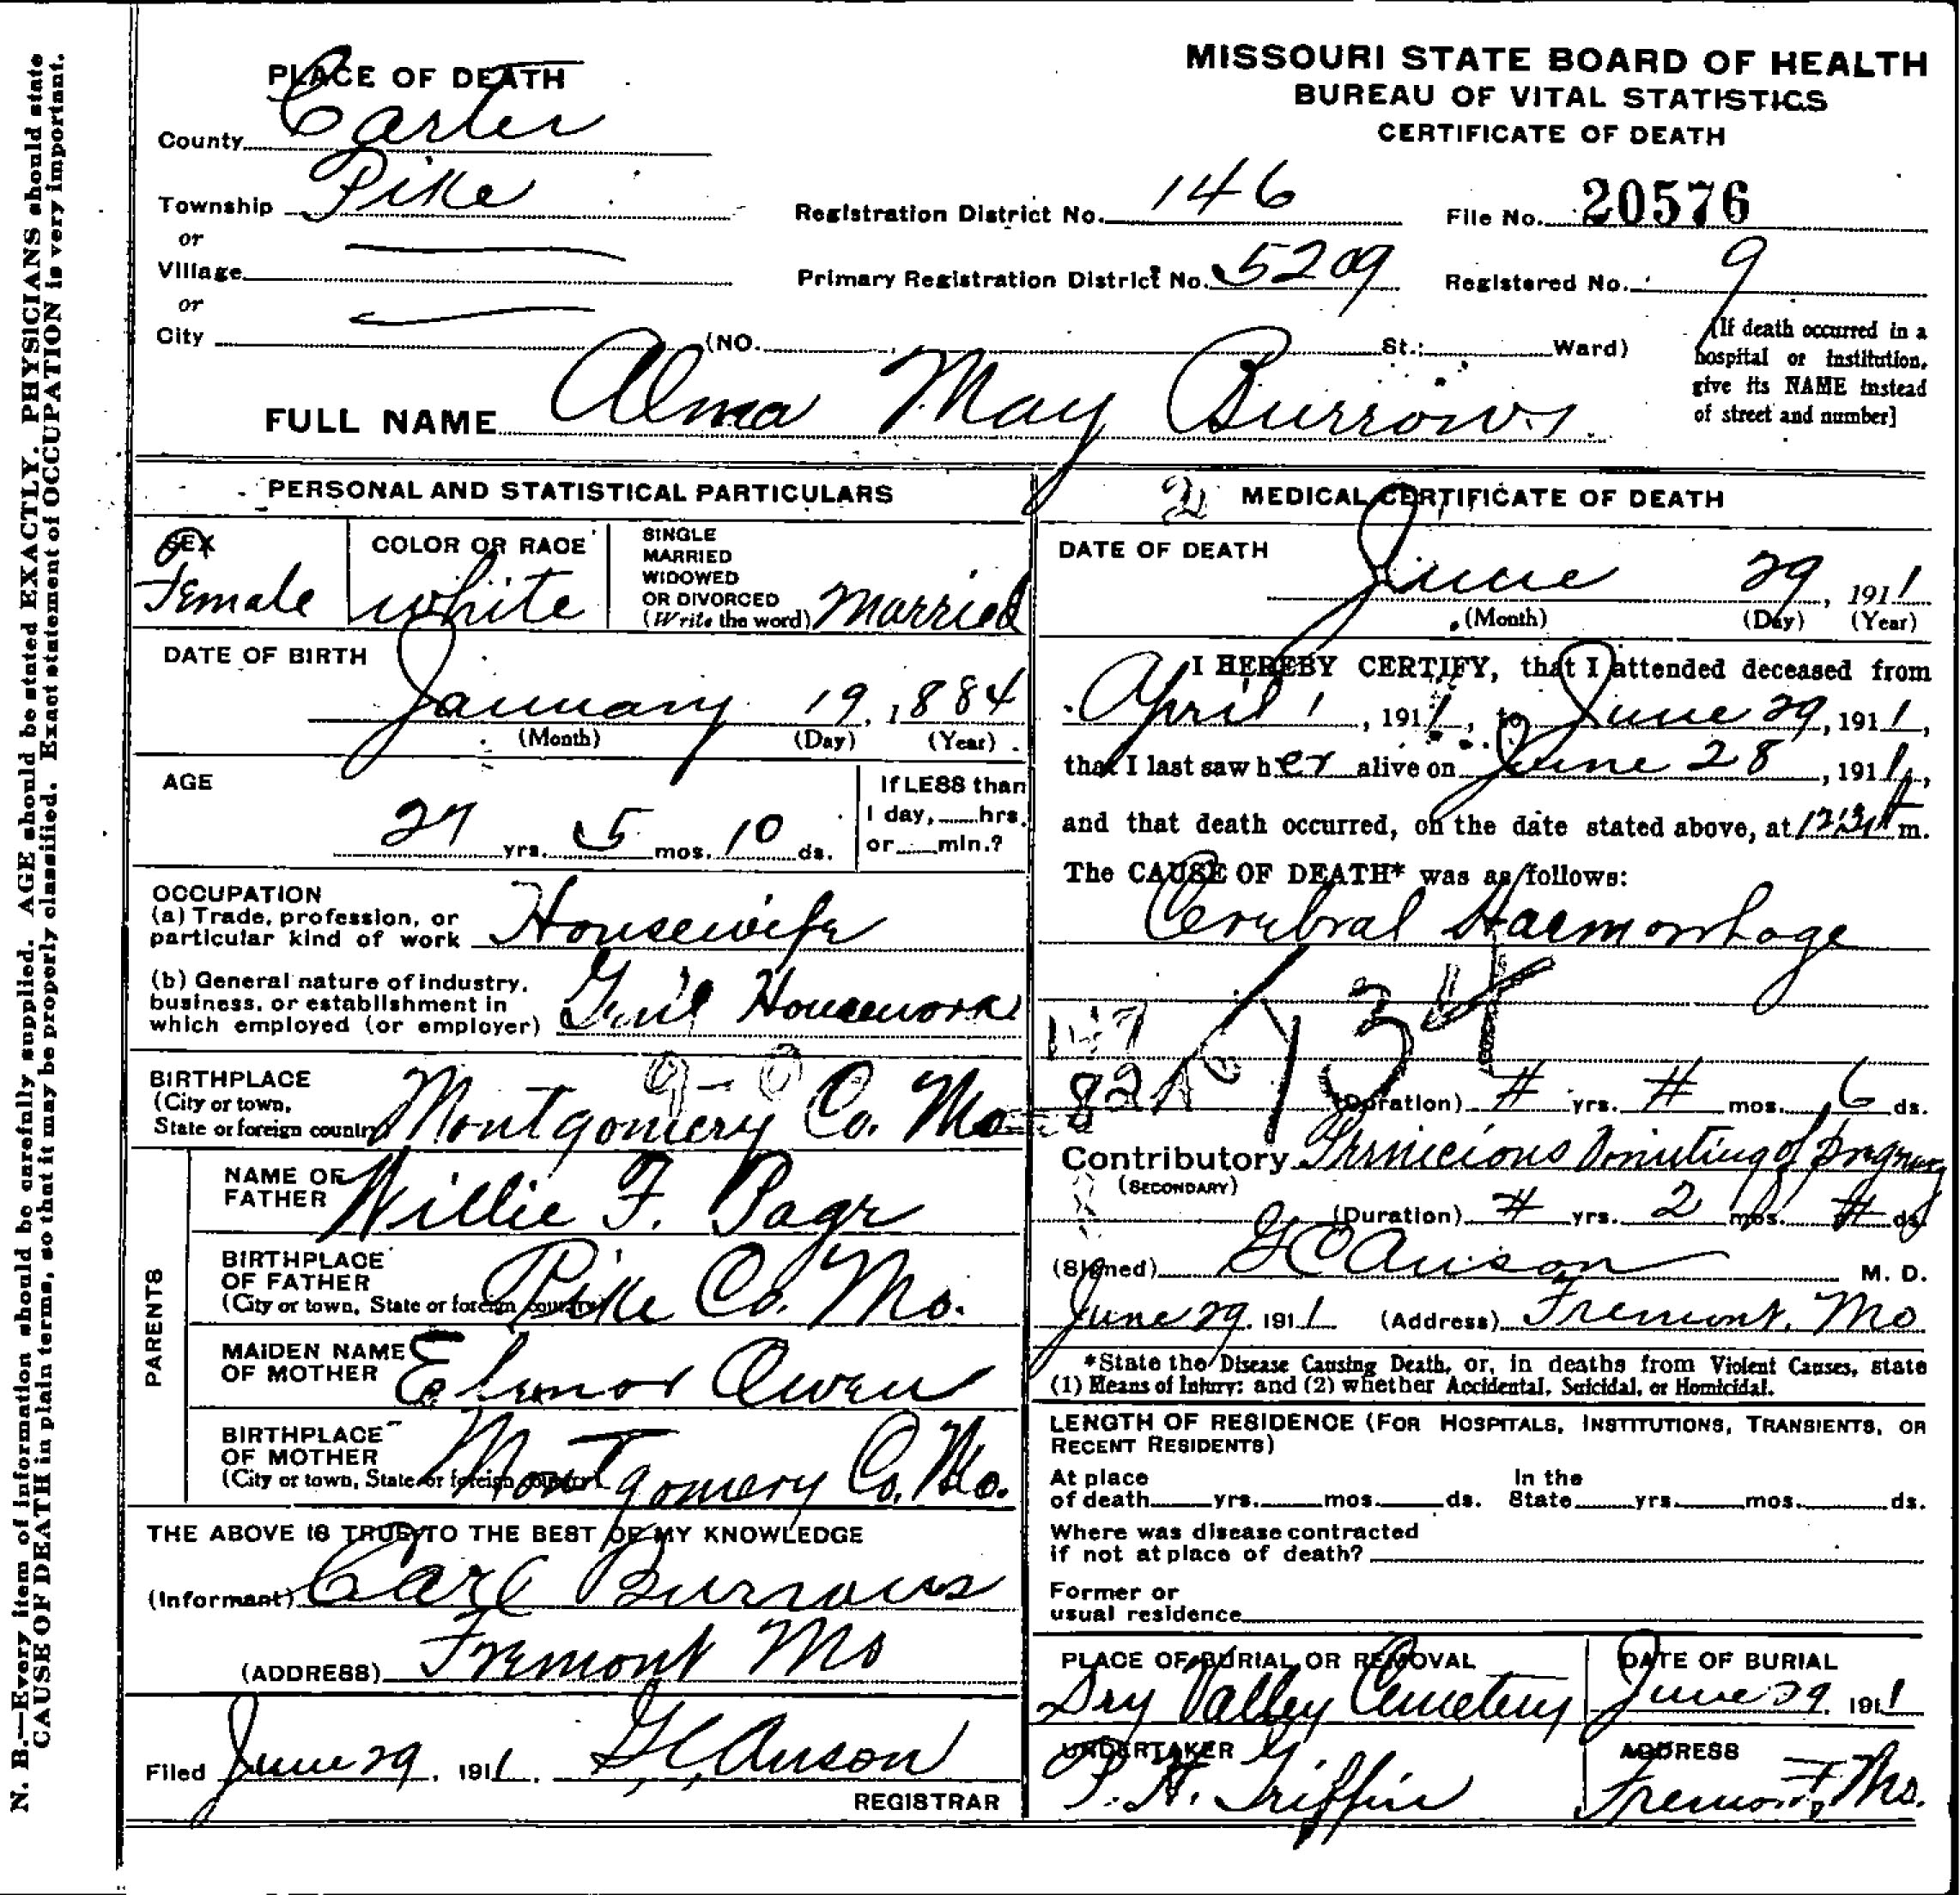 N. B.—Every item of information should be carefully supplied. AGE should be stated EXACTLY. PHYSICIANS should state
CAUSE OF DEATH in plain terms, so that it may be properly classified. Exact statement of OCCUPATION is very important.
MISSOURI STATE BOARD OF HEALTH
BUREAU OF VITAL STATISTICS
CERTIFICATE OF DEATH
PLACE OF DEATH
County Carter
Township Pike
or
Village
or
City (NO. St.; Ward)
Registration District No. 146 File No. 20576
Primary Registration District No. 5209 Registered No. 9
[If death occurred in a
hospital or institution,
give its NAME instead
of street and number]
FULL NAME Alma May Burrows
PERSONAL AND STATISTICAL PARTICULARS
SEX
Female
COLOR OR RACE
white
SINGLE
MARRIED
WIDOWED
OR DIVORCED
(Write the word) Married
DATE OF BIRTH
January 19, 1884
(Month) (Day) (Year)
AGE
27 yrs. 5 mos. 10 ds.
If LESS than
1 day, hrs.
or min.?
OCCUPATION
(a) Trade, profession, or
particular kind of work Housewife
(b) General nature of industry,
business, or establishment in
which employed (or employer) Gen'l Housework
9-0
BIRTHPLACE
(City or town,
State or foreign country) Montgomery Co. Mo
PARENTS
NAME OF
FATHER Willie F. Page
BIRTHPLACE
OF FATHER
(City or town, State or foreign country) Pike Co. Mo.
MAIDEN NAME
OF MOTHER Elenor Owen
BIRTHPLACE
OF MOTHER
(City or town, State or foreign country) Montgomery Co. Mo.
THE ABOVE IS TRUE TO THE BEST OF MY KNOWLEDGE
(Informant) Carl Burrows
(ADDRESS) Fremont Mo
Filed June 29, 1911. G.C. Anson
REGISTRAR
2 MEDICAL CERTIFICATE OF DEATH
DATE OF DEATH
June 29, 1911
(Month) (Day) (Year)
I HEREBY CERTIFY, that I attended deceased from
April 1, 1911, to June 29, 1911,
that I last saw her alive on June 28, 1911,
and that death occurred, on the date stated above, at m.
The CAUSE OF DEATH* was as follows:
Cerebral Haemorrhage
134
147
82A
(Duration) # yrs. # mos. 6 ds.
Contributory Pernicious Vomiting of pregnancy
(SECONDARY)
(Duration) # yrs. 2 mos. # ds.
(Signed) G C Anson M. D.
June 29, 1911 (Address) Fremont, Mo
*State the Disease Causing Death, or, in deaths from Violent Causes, state
(1) Means of Injury; and (2) whether Accidental, Suicidal, or Homicidal.
LENGTH OF RESIDENCE (FOR HOSPITALS, INSTITUTIONS, TRANSIENTS, OR
RECENT RESIDENTS)
At place
of death yrs. mos. ds.
In the
State yrs. mos. ds.
Where was disease contracted
if not at place of death?
Former or
usual residence
PLACE OF BURIAL OR REMOVAL
Dry Valley Cemetery
DATE OF BURIAL
June 29, 1911
UNDERTAKER
P. H. Griffin
ADDRESS
Fremont, Mo.